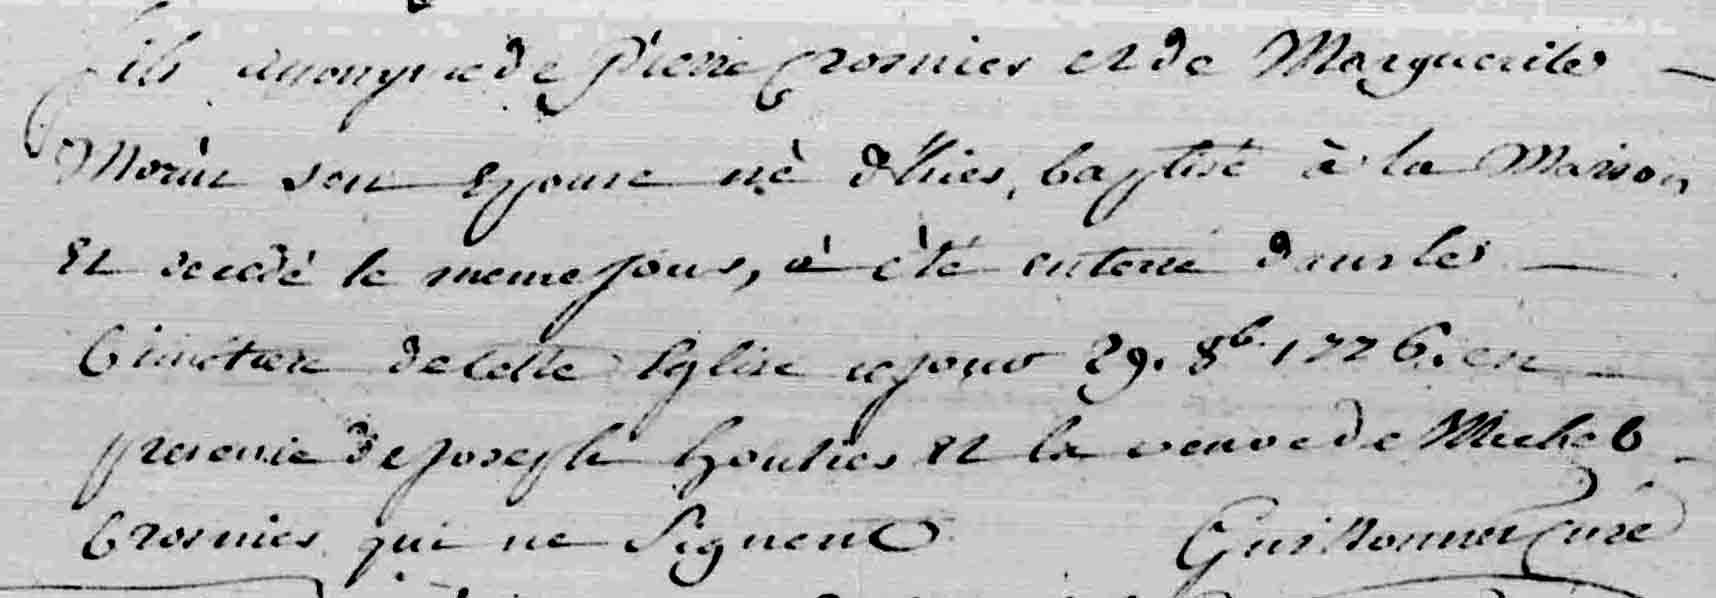 fils anonyme de Pierre Crosnier et de Marguerite
Morin son Epouse né d'hier, baptisé à la Maison
Et decedé le meme jour, à èté enterré dans le
Cimetiere de cette Eglise ce jour 29. 8b. 1776. en
presence de joseph houlier Et la veuve de Michel
Crosnier qui ne signent Guillonneau Curé